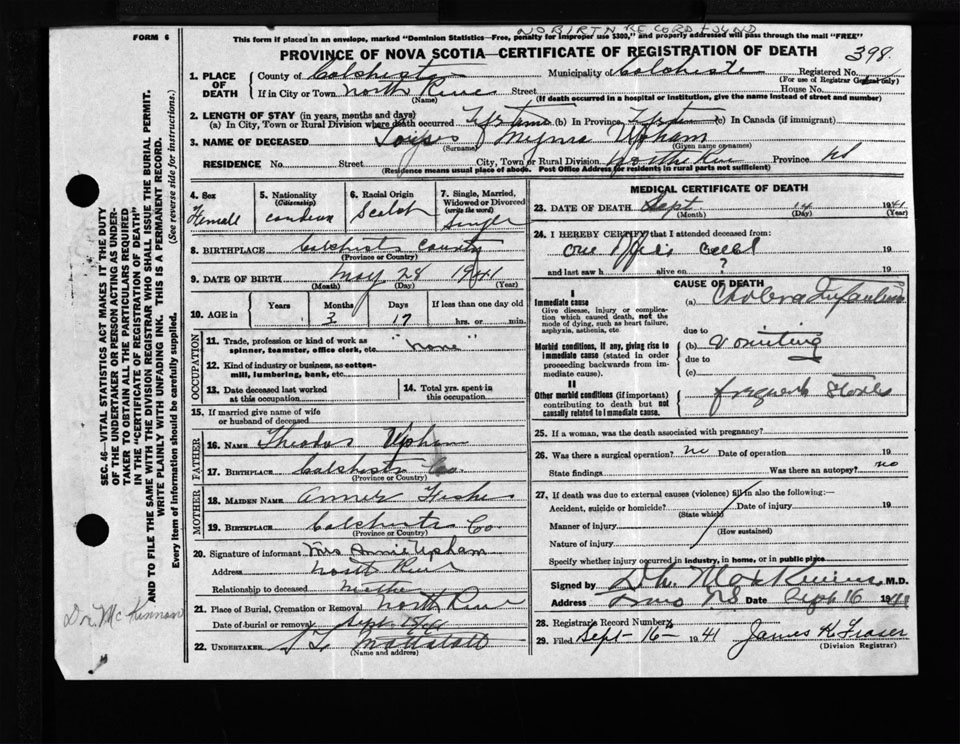 NO BIRTH RECORD FOUND
FORM 6
This form if placed in an envelope, marked "Dominion Statistics—Free, penalty for improper use $300," and properly addressed will pass through the mail "FREE"
PROVINCE OF NOVA SCOTIA—CERTIFICATE OF REGISTRATION OF DEATH
398.
1. PLACE OF DEATH
County of Colchester Municipality of Colchester Registered No.
(For use of Registrar General only)
If in City or Town North River Street House No.
(Name) (If death occurred in a hospital or institution, give the name instead of street and number)
2. LENGTH OF STAY (in years, months and days)
(a) In City, Town or Rural Division where death occurred (b) In Province (c) In Canada (if immigrant)
3. NAME OF DECEASED Myrna Upham
(Surname) (Given name or names)
RESIDENCE No. Street City, Town or Rural Division North River Province NS
(Residence means usual place of abode. Post Office Address for residents in rural parts not sufficient)
4. Sex
Femall
5. Nationality
(Citizenship)
6. Racial Origin
Scotch
7. Single, Married, Widowed or Divorced
(write the word)
Single
8. BIRTHPLACE Colchester County
(Province or Country)
9. DATE OF BIRTH May 28 1941
(Month) (Day) (Year)
10. AGE in
Years Months Days If less than one day old
3 17 hrs. or min.
OCCUPATION
11. Trade, profession or kind of work as spinner, teamster, office clerk, etc. "none"
12. Kind of industry or business, as cotton-mill, lumbering, bank, etc.
13. Date deceased last worked at this occupation
14. Total yrs. spent in this occupation
15. If married give name of wife or husband of deceased
FATHER
16. NAME Upham
17. BIRTHPLACE Colchester Co.
(Province or Country)
MOTHER
18. MAIDEN NAME
19. BIRTHPLACE Colchester Co
(Province or Country)
20. Signature of informant Mrs Annie Upham
Address North River
Relationship to deceased Mother
21. Place of Burial, Cremation or Removal North River
Date of burial or removal Sept 15/41
22. UNDERTAKER
(Name and address)
MEDICAL CERTIFICATE OF DEATH
23. DATE OF DEATH Sept. 14 1941
(Month) (Day) (Year)
24. I HEREBY CERTIFY that I attended deceased from:
19
and last saw h alive on ? 19
CAUSE OF DEATH
I
Immediate cause
Give disease, injury or complication which caused death, not the mode of dying, such as heart failure, asphyxia, asthenia, etc.
(a) Cholera Infantum
due to
Morbid conditions, if any, giving rise to immediate cause (stated in order proceeding backwards from immediate cause).
(b) Vomiting
due to
(c)
II
Other morbid conditions (if important) contributing to death but not causally related to immediate cause.
frequent Stools
25. If a woman, was the death associated with pregnancy?
26. Was there a surgical operation? no Date of operation 19
State findings Was there an autopsy? no
27. If death was due to external causes (violence) fill in also the following:—
Accident, suicide or homicide? Date of injury 19
(State which)
Manner of injury
(How sustained)
Nature of injury
Specify whether injury occurred in industry, in home, or in public place
Signed by M.D.
Address Truro N.S. Date Sept 16 1941
28. Registrar's Record Number
29. Filed Sept-16th 1941 James K Fraser
(Division Registrar)
SEC. 46—VITAL STATISTICS ACT MAKES IT THE DUTY OF THE UNDERTAKER OR PERSON ACTING AS UNDERTAKER TO OBTAIN ALL THE PARTICULARS REQUIRED IN THE "CERTIFICATE OF REGISTRATION OF DEATH" AND TO FILE THE SAME WITH THE DIVISION REGISTRAR WHO SHALL ISSUE THE BURIAL PERMIT.
WRITE PLAINLY WITH UNFADING INK. THIS IS A PERMANENT RECORD.
Every item of information should be carefully supplied. (See reverse side for instructions.)
Dr. McKinnon